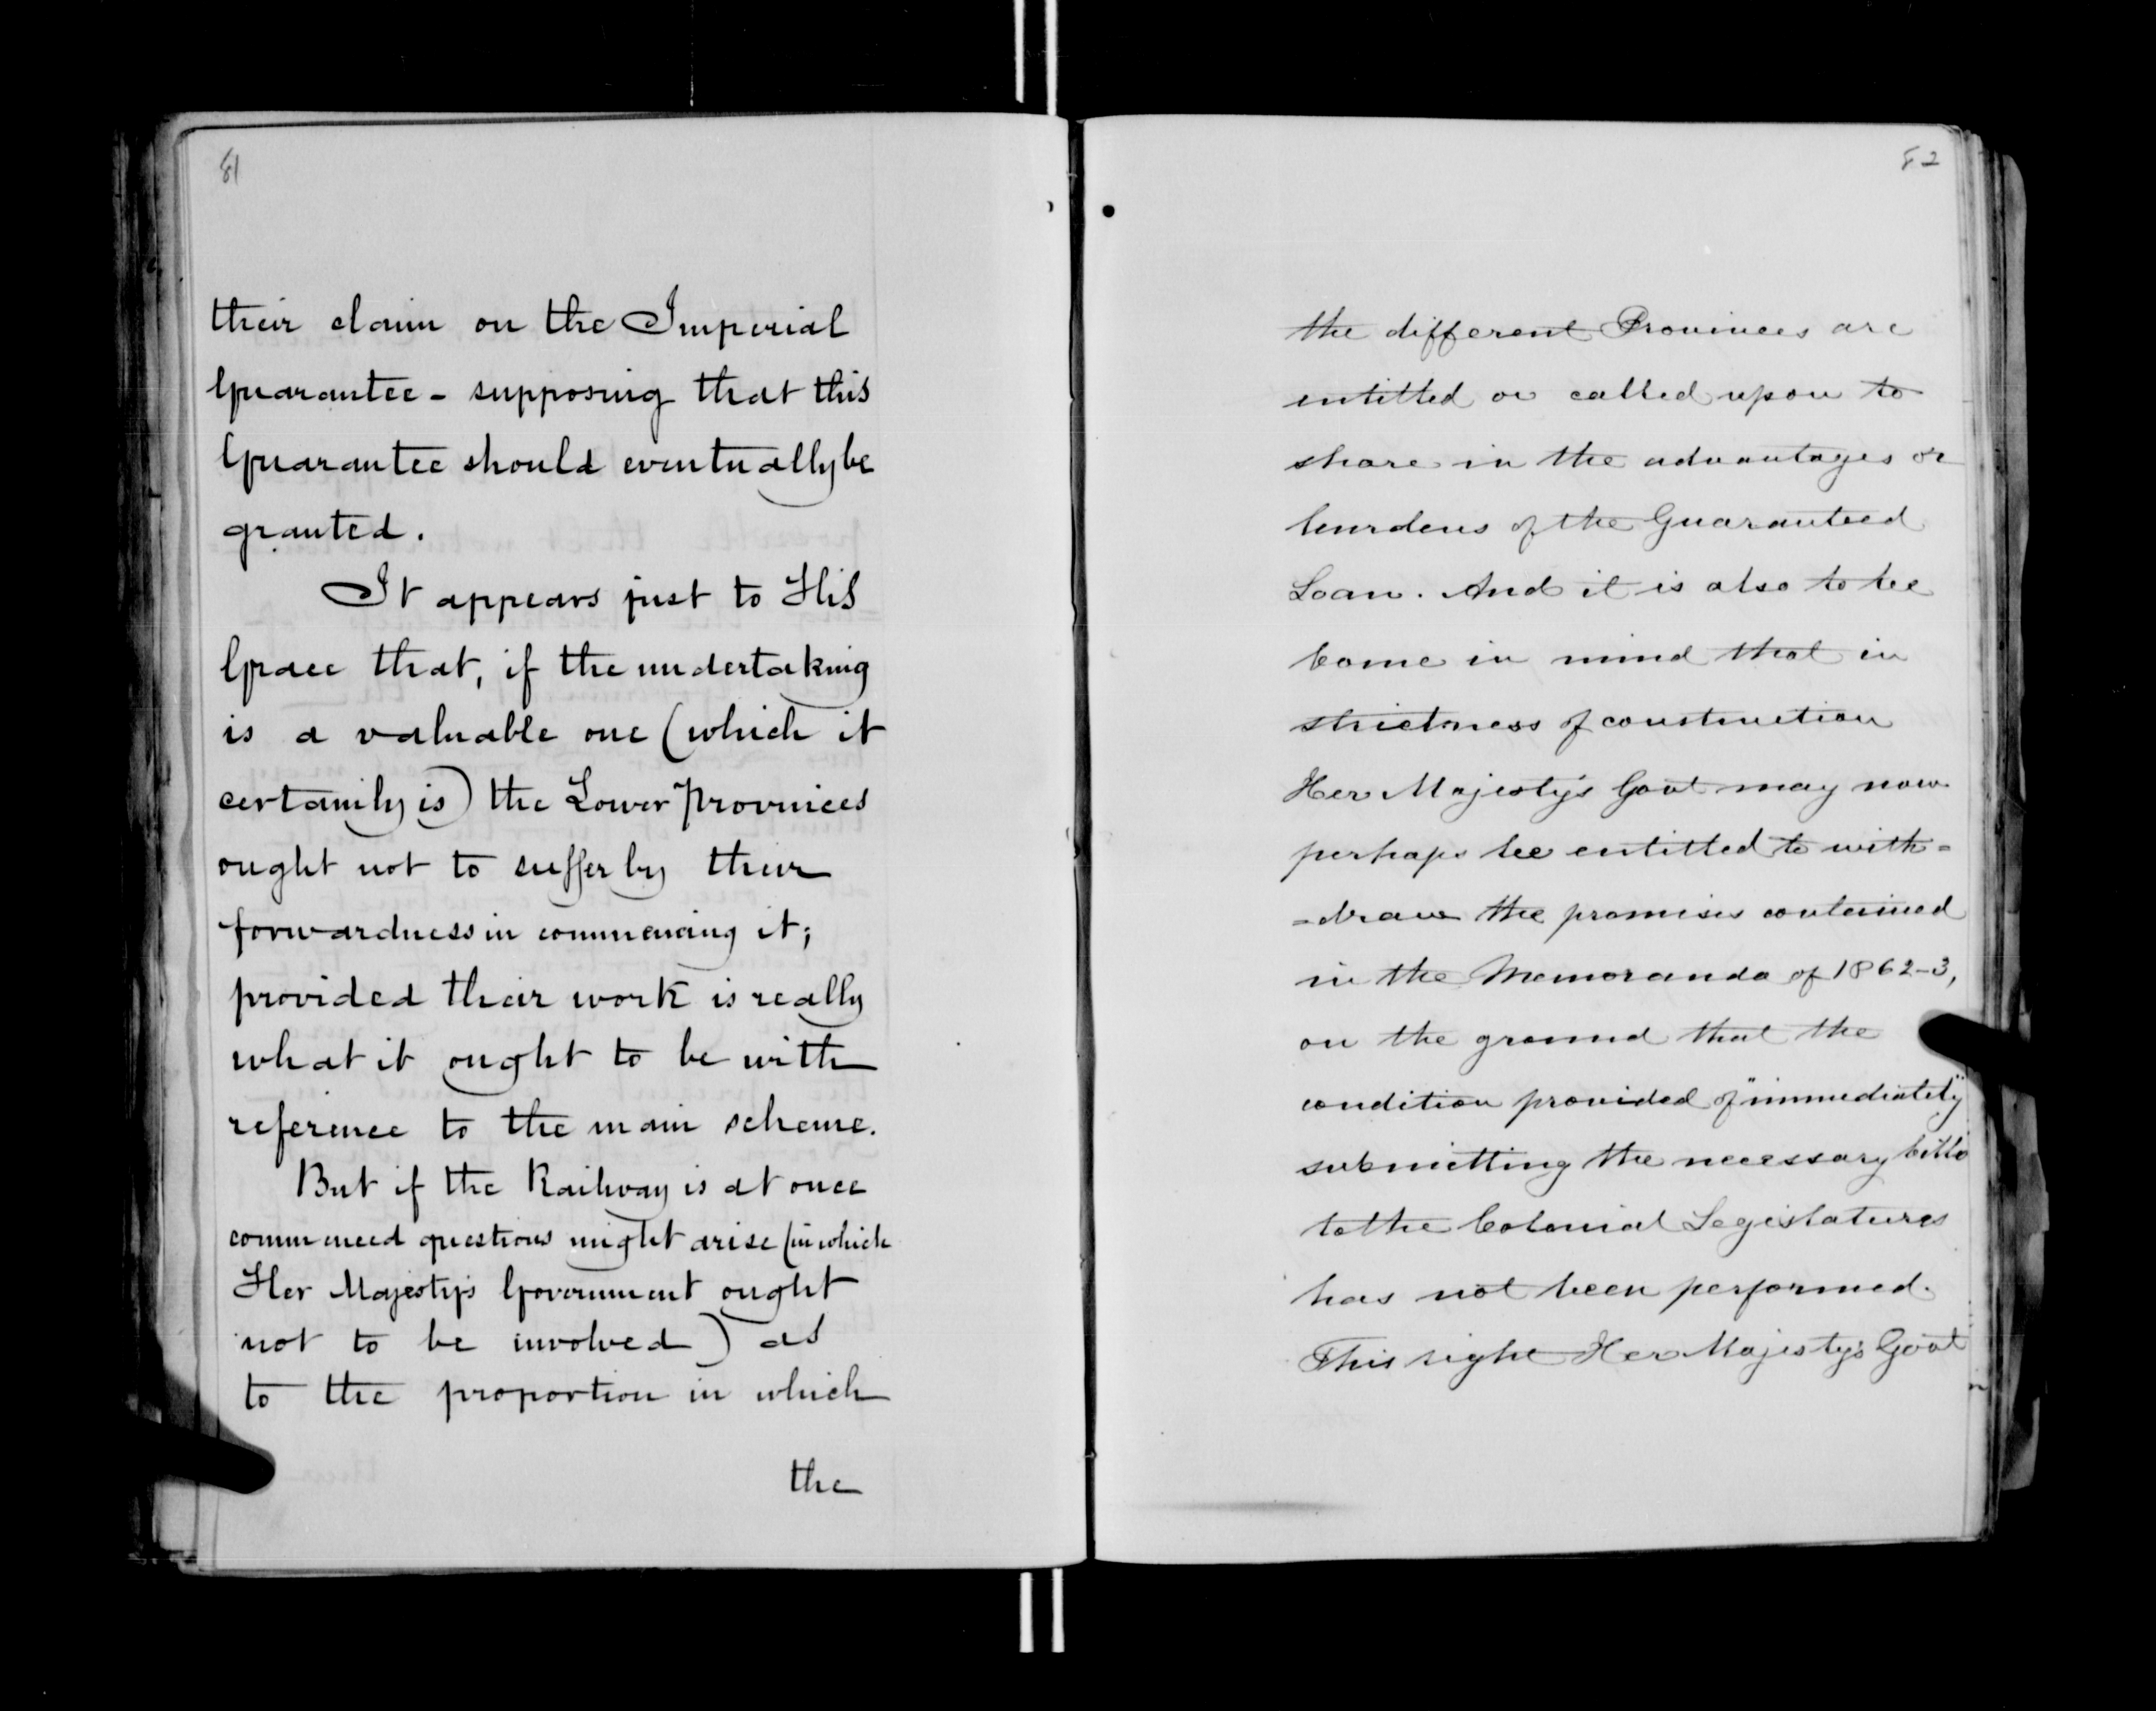 81
their claim on the Imperial
Guarantee - supposing that this
Guarantee should eventually be
granted.
It appears just to His
Grace that, if the undertaking
is a valuable one (which it
certainly is) the Lower Provinces
ought not to suffer by their
forwardness in commencing it;
provided their work is really
what it ought to be with
reference to the main scheme.
But if the Railway is at once
commenced questions might arise (in which
Her Majesty's Government ought
not to be involved) as
to the proportion in which
the
82
the different Provinces are
entitled or called upon to
share in the advantages or
burdens of the Guaranteed
Loan. And it is also to be
borne in mind that in
strictness of construction
Her Majesty's Govt may now
perhaps be entitled to with=
=draw the promises contained
in the Memoranda of 1862-3,
on the ground that the
condition provided of "immediately"
submitting the necessary bills
to the Colonial Legislatures
has not been performed.
This right Her Majesty's Govt